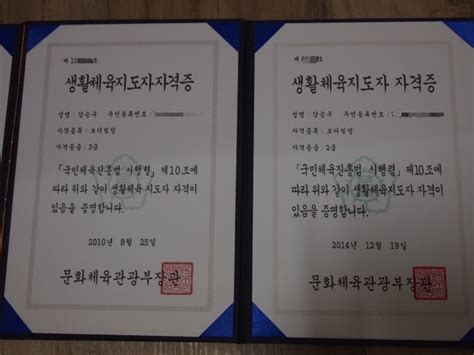 제 12 호
생활체육지도자자격증
성명 : 강승구 주민등록번호 :
자격종류 : 보디빌딩
자격등급 : 3급
「국민체육진흥법 시행령」 제10조에
따라 위와 같이 생활체육지도자 자격이
있음을 증명합니다.
2010 년 8 월 25 일
문화체육관광부장관
제 호
생활체육지도자 자격증
성명 : 강승구 주민등록번호 :
자격종류 : 보디빌딩
자격등급 : 2급
「국민체육진흥법 시행령」 제10조에
따라 위와 같이 생활체육지도자 자격이
있음을 증명합니다.
2014 년 12 월 19 일
문화체육관광부장관